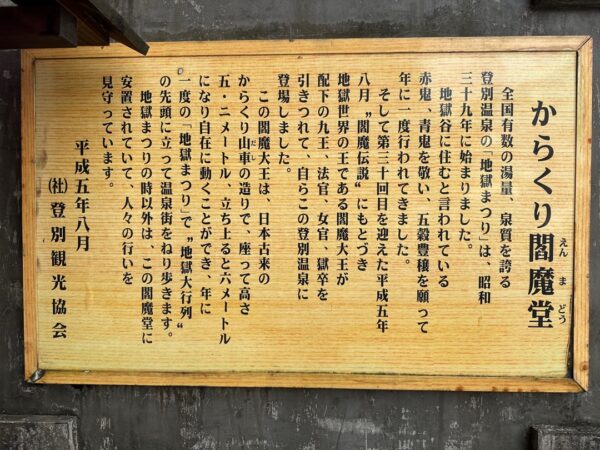 からくり閻魔堂
えん ま どう
全国有数の湯量、泉質を誇る
登別温泉の「地獄まつり」は、昭和
三十九年に始まりました。
地獄谷に住むと言われている
赤鬼、青鬼を敬い、五穀豊穣を願って
年に一度行われてきました。
そして第三十回目を迎えた平成五年
八月〝閻魔伝説〟にもとづき
地獄世界の王である閻魔大王が
配下の九王、法官、女官、獄卒を
引きつれて、自らこの登別温泉に
登場しました。
この閻魔大王は、日本古来の
からくり山車の造りで、座って高さ
五・二メートル、立ち上ると六メートル
になり自在に動くことができ、年に
一度の「地獄まつり」で〝地獄大行列〟
の先頭に立って温泉街をねり歩きます。
地獄まつりの時以外は、この閻魔堂に
安置されていて、人々の行いを
見守っています。
平成五年八月
(社)登別観光協会